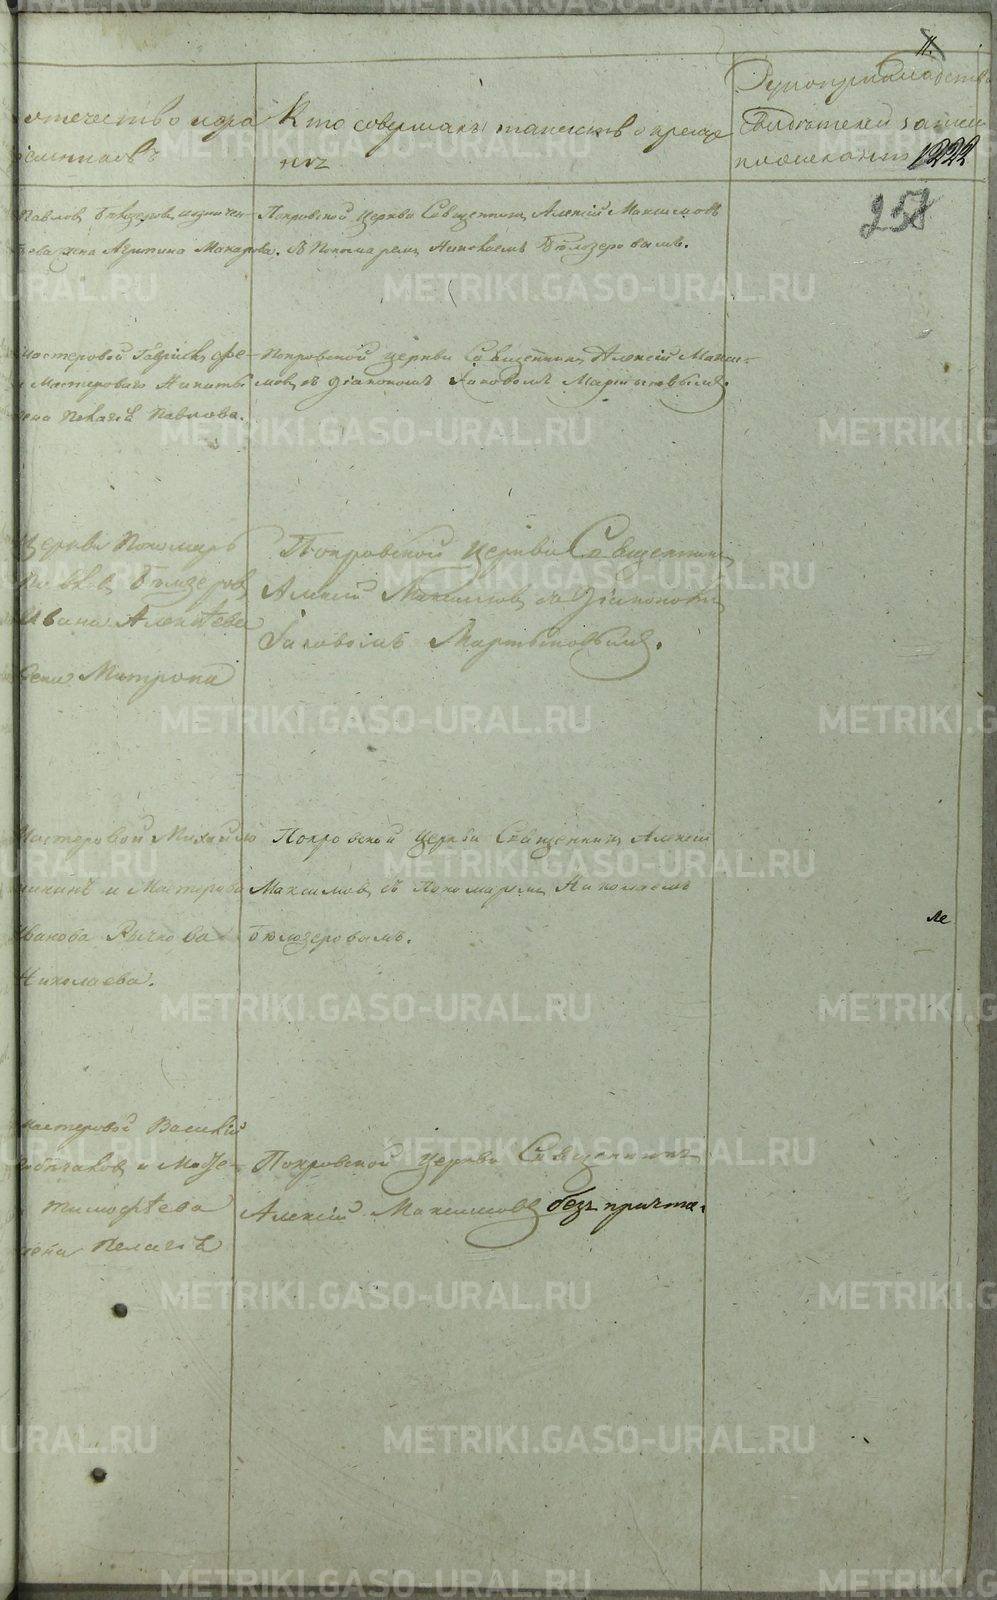 11.
отечество и фа
Кто совершалъ таинство креще
нiя
Рукоприкладство
свидѣтелей записи
по желанію
1222
258
Павлов Бѣлозеров,
жена Агрипина Макарова.
Покровской церкви Священникъ Алексiй Максимовъ
съ Пономаремъ Николаемъ Бѣлозеровымъ.
мастеровой Гаврiилъ Фе-
и Мастероваго Никиты
жена Пелагiя Павлова.
Покровской церкви Священникъ Алексiй Макси-
мовъ съ дiакономъ Iаковомъ Мартыновымъ.
Церкви Пономарь
Бѣлозеровъ
Ивана Алексѣева
жена Митропа
Покровской церкви Священникъ
Алексiй Максимовъ съ Дiакономъ
Iаковомъ Мартыновымъ.
Мастеровой Михайло
и Мастерова
Иванова Рычкова
Николаева.
Покровской церкви Священникъ Алексiй
Максимовъ съ Пономаремъ Николаемъ
Бѣлозеровымъ.
ле
мастеровой Василiй
и Мате-
Тимофѣева
жена Пелагiя
Покровской церкви Священникъ
Алексiй Максимовъ безъ причта.
METRIKI.GASO-URAL.RU